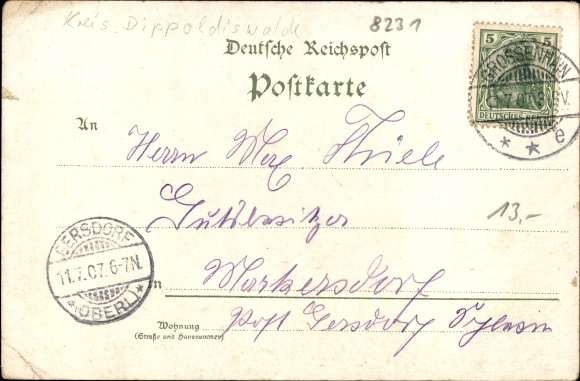 Kreis Dippoldiswalde
8231
Deutsche Reichspost
Postkarte
5 5
DEUTSCHES REICH
GROSSENHAIN
* * e
An
Herrn Max Thiele
Gutsbesitzer
13,-
GERSDORF
11.7.07.6-7N.
*(OBERL)*
in Markersdorf
Wohnung
(Straße und Hausnummer)
Post Gersdorf Schlesien